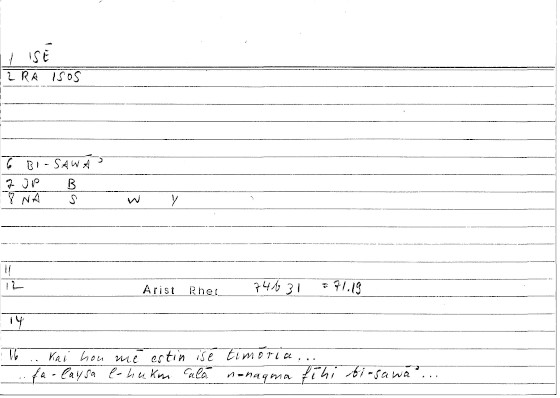 1 ISĒ
2 RA ISOS
6 BI-SAWĀʾ
7 JP B
8 NA S W Y
11
12 Arist Rhet 74b31 = 71.19
14
16 .. kai hou mē estin isē timōria...
.. fa-laysa l-hukm ʿalā n-naqma fīhi bi-sawāʾ...